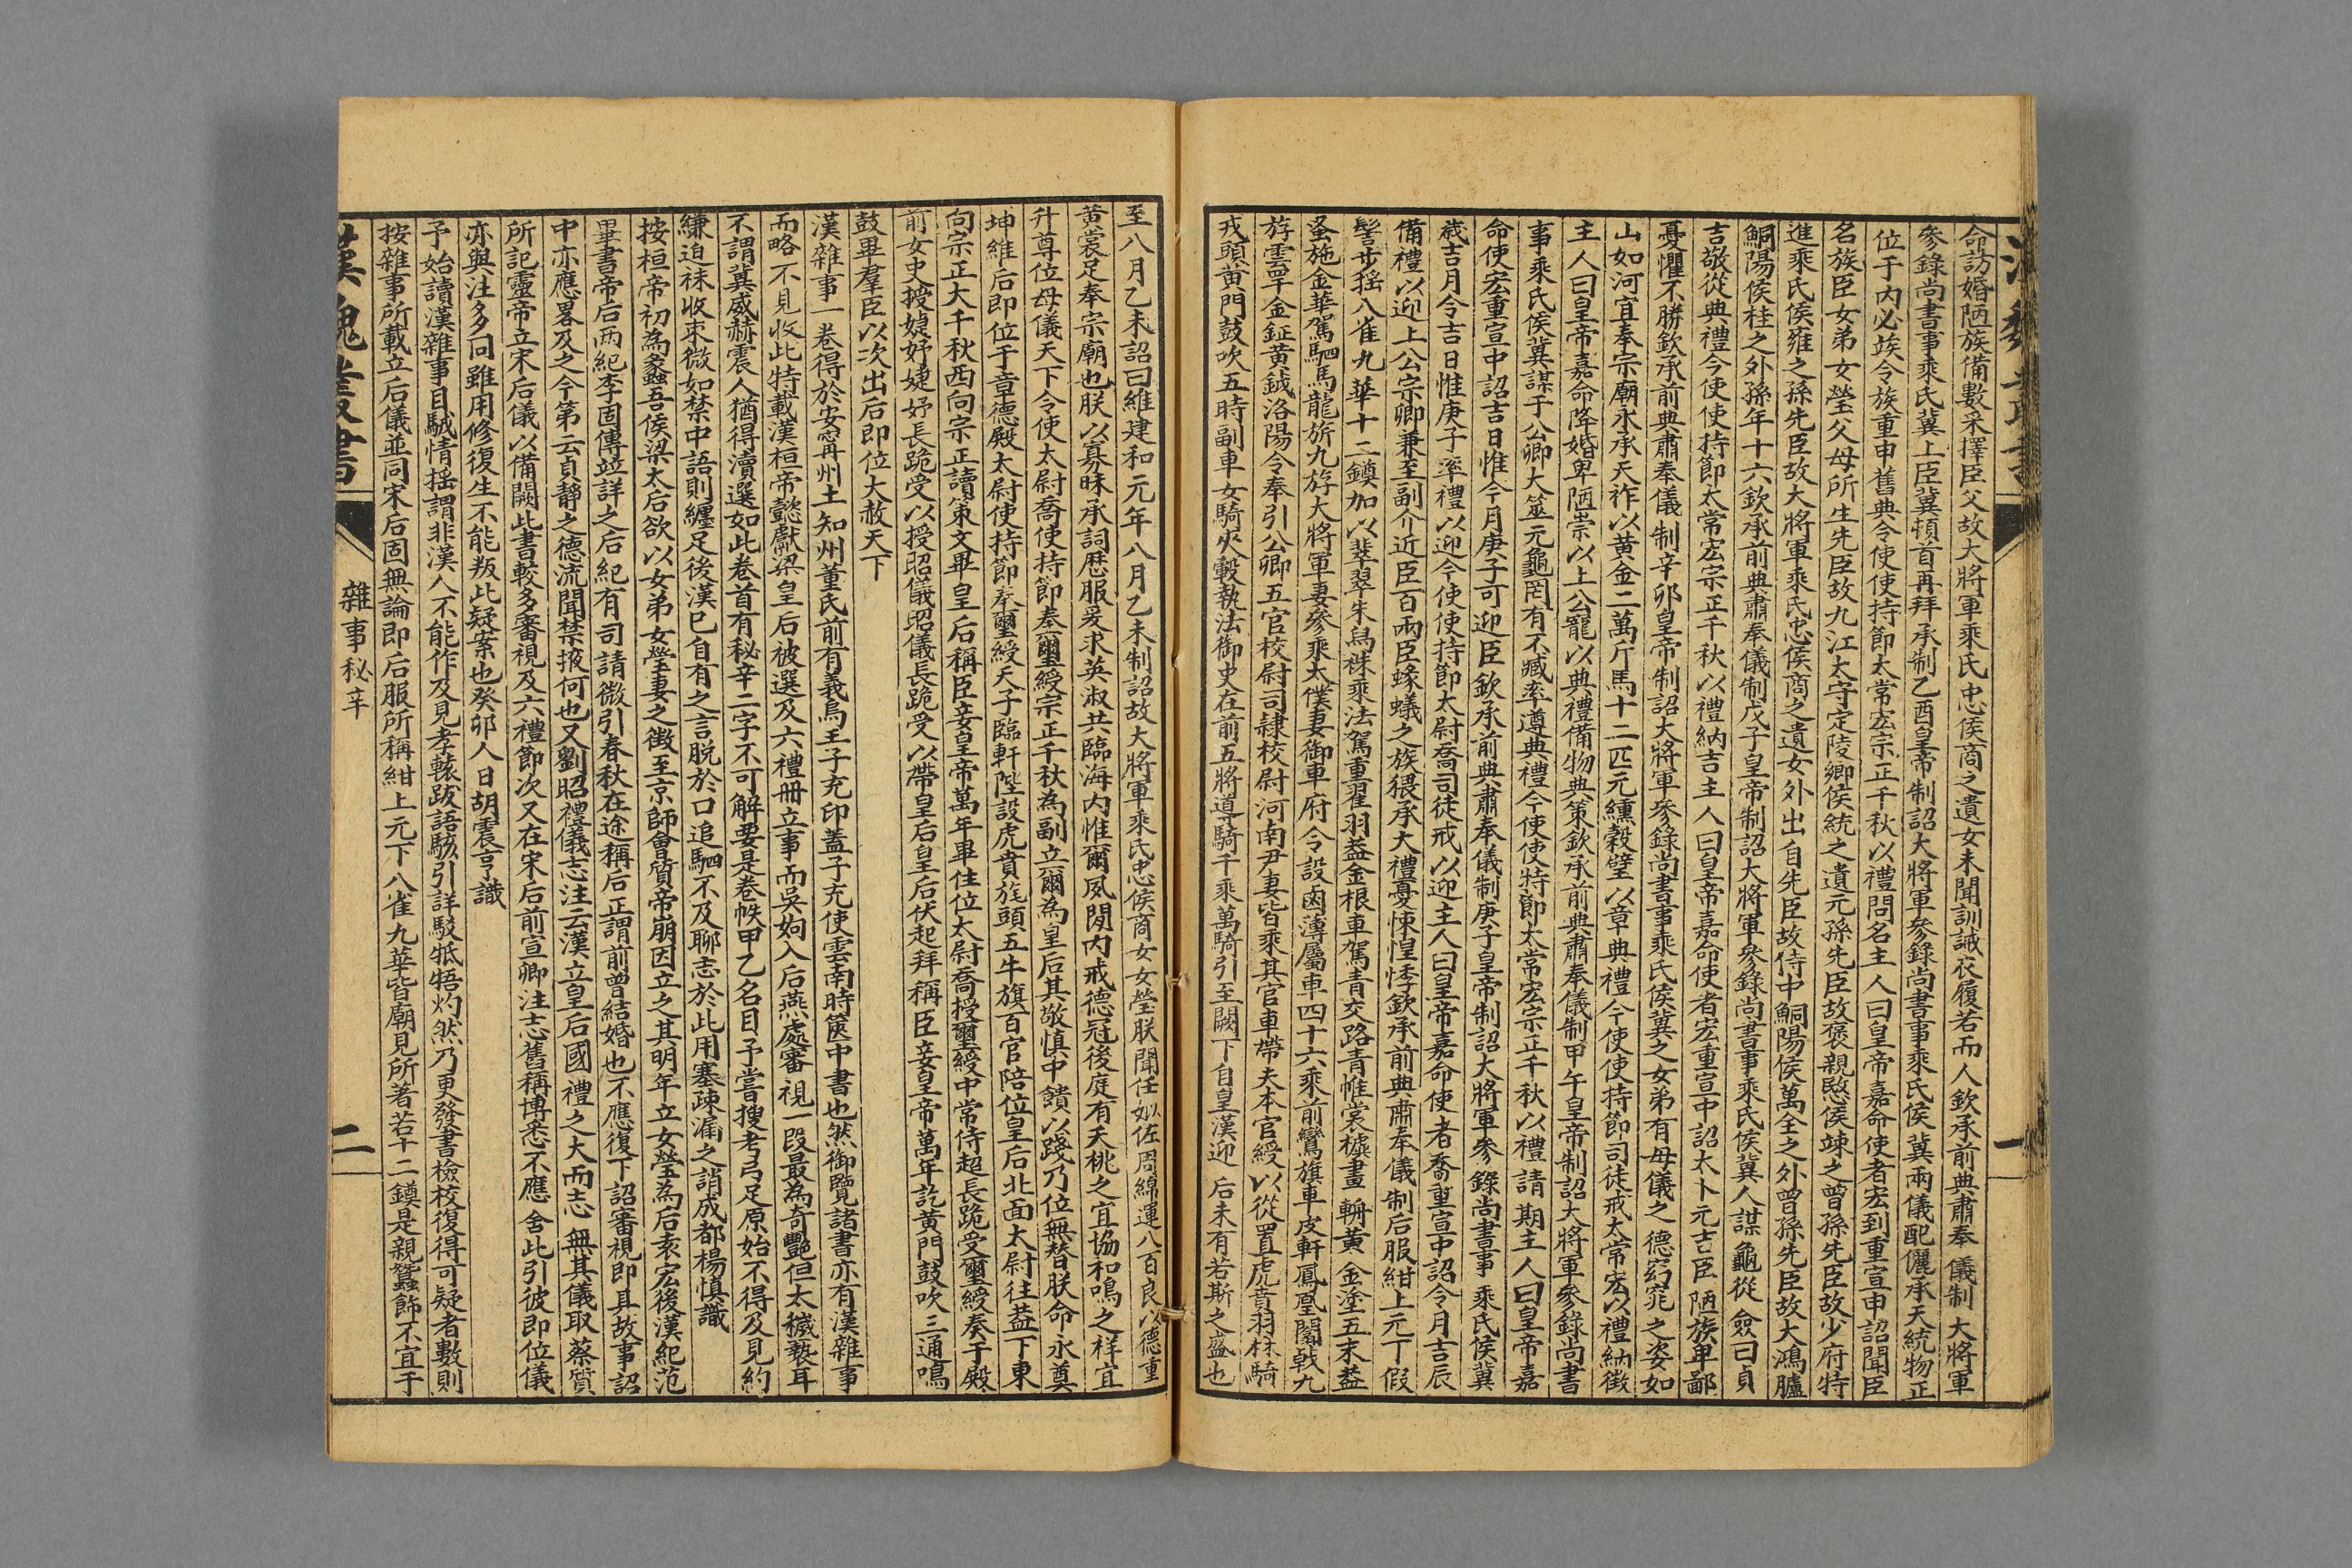 漢魏叢書
一
命訪婚陋族備數采擇臣父故大將軍乘氏忠侯商之遺女未閒訓誡衣履若而人欽承前典肅奉儀制大將軍
參錄尚書事乘氏冀上臣冀頓首再拜承制乙酉皇帝制詔大將軍參錄尚書事乘氏侯冀兩儀配儷承天統物正
位于內必竢令族重申舊典令使使持節太常宏宗正千秋以禮問名主人曰皇帝嘉命使者宏到重宣申詔聞臣
名族臣女弟女瑩父母所生先臣故九江太守定陵鄉侯統之遺元孫先臣故褒親愍侯竦之曾孫先臣故少府特
進乘氏侯雍之孫先臣故大將軍乘氏忠侯商之遺女外出自先臣故侍中鮦陽侯萬全之外曾孫先臣故大鴻臚
鮦陽侯桂之外孫年十六欽承前典肅奉儀制戊子皇帝制詔大將軍參錄尚書事乘氏侯冀人謀龜從僉曰貞
吉敬從典禮今使使持節太常宏宗正千秋以禮納吉主人曰皇帝嘉命使者宏重宣中詔太卜元吉臣陋族卑鄙
憂懼不勝欽承前典肅奉儀制辛卯皇帝制詔大將軍參錄尚書事乘氏侯冀之女弟有母儀之德窈窕之姿如
山如河宜奉宗廟永承天祚以黃金二萬斤馬十二匹元纁榖璧以章典禮今使使持節司徒戒太常宏以禮納徵
主人曰皇帝嘉命降婚卑陋崇以上公寵以典禮備物典策欽承前典肅奉儀制甲午皇帝制詔大將軍參錄尚書
事乘氏侯冀謀于公卿大筮元龜罔有不臧率遵典禮今使使持節太常宏宗正千秋以禮請期主人曰皇帝嘉
命使宏重宣中詔吉日惟今月庚子可迎臣欽承前典肅奉儀制庚子皇帝制詔大將軍參錄尚書事乘氏侯冀
歲吉月令吉日惟庚子率禮以迎今使使持節太尉喬司徒戒以迎主人曰皇帝嘉命使者喬重宣中詔令月吉辰
備禮以迎上公宗卿兼至副介近臣百兩臣蝝蟻之族猥承大禮憂悚惶悸欽承前典肅奉儀制后服紺上元下假
髻步搖八雀九華十二鏌加以翡翠朱舄襪乘法駕重翟羽葢金根車駕青交路青帷裳樾畫輈黃金塗五末葢
蚤施金華駕駟馬龍旂九斿大將軍妻參乘太僕妻御車府令設鹵薄屬車四十六乘前鸞旗車皮軒鳳凰闟戟九
斿雲罕金鉦黃鉞洛陽令奉引公卿五官校尉司隸校尉河南尹妻皆乘其官車帶夫本官綬以從置虎賁羽林騎
戎頭黃門鼓吹五時副車女騎夾轂執法御史在前五將導騎千乘萬騎引至闕下自皇漢迎后未有若斯之盛也
至八月乙未詔曰維建和元年八月乙未制詔故大將軍乘氏忠侯商女女瑩朕聞任姒佐周綿運八百良以德重
黃裳足奉宗廟也朕以寡昧承詞歷服爰求英淑共臨海內惟爾夙閑內戒德冠後庭有夭桃之宜協和鳴之祥宜
升尊位母儀天下今使太尉喬使持節奉璽綬宗正千秋為副立爾為皇后其敬慎中饋以踐乃位無替朕命永奠
坤維后即位于章德殿太尉使持節奉璽綬天子臨軒陛設虎賁旄頭五牛旗百官陪位皇后北面太尉往葢下東
向宗正大千秋西向宗正讀策文畢皇后稱臣妾皇帝萬年畢住位太尉喬授璽綬中常侍超長跪受璽綬奏于殿
前女史授婕妤婕妤長跪受以授昭儀昭儀長跪受以帶皇后皇后伏起拜稱臣妾皇帝萬年訖黃門鼓吹三通鳴
鼓畢羣臣以次出后即位大赦天下
漢雜事一卷得於安寧州土知州董氏前有義烏王子充印蓋子充使雲南時篋中書也然御覽諸書亦有漢雜事
而略不見收此特載漢桓帝懿獻梁皇后被選及六禮冊立事而吳姁入后燕處審視一段最為奇艷但太穢褻耳
不謂冀威赫震人猶得瀆選如此卷首有秘辛二字不可解要是卷帙甲乙名目予嘗搜考弓足原始不得及見約
縑迫袜收束微如禁中語則纏足後漢已自有之言脫於口追駟不及聊志於此用塞疎漏之誚成都楊慎識
按桓帝初為蠡吾侯梁太后欲以女弟女瑩妻之徵至京師會質帝崩因立之其明年立女瑩為后袁宏後漢紀范
畢書帝后兩紀李固傳竝詳之后紀有司請徵引春秋在途稱后正謂前曾結婚也不應復下詔審視即具故事詔
中亦應畧及之今第云貞靜之德流聞禁掖何也又劉昭禮儀志注云漢立皇后國禮之大而志無其儀取蔡質
所記靈帝立宋后儀以備闕此書較多審視及六禮節次又在宋后前宣卿注志舊稱博悉不應舍此引彼即位儀
亦與注多同雖用修復生不能叛此疑案也癸卯人日胡震亨識
予始讀漢雜事目駴情搖謂非漢人不能作及見孝轅跋語駭引詳駁牴牾灼然乃更發書檢校復得可疑者數則
按雜事所載立后儀並同宋后固無論即后服所稱紺上元下八雀九華皆廟見所著若十二鏌是親蠶飾不宜于
漢魏叢書
雜事秘辛
二